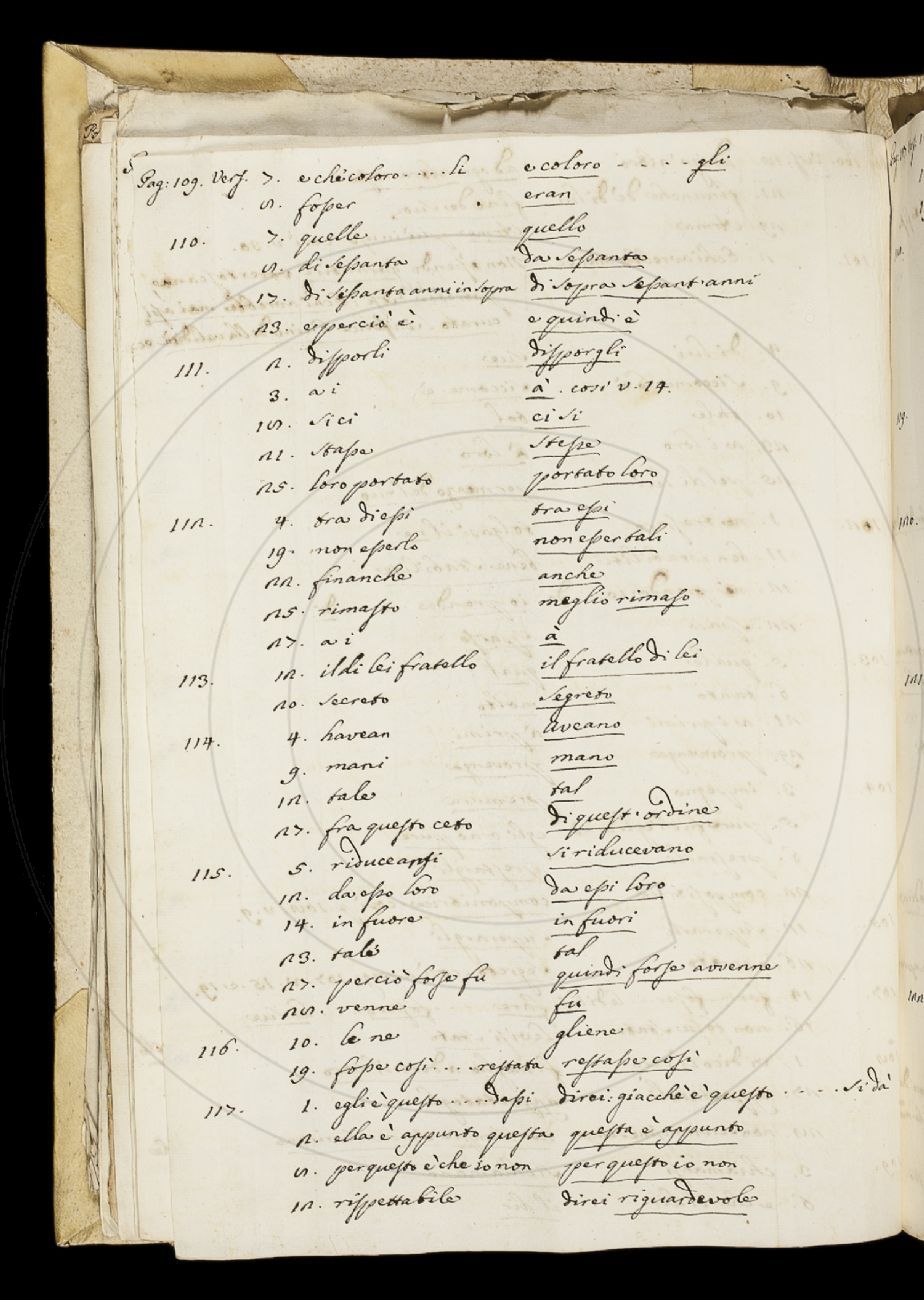 5
Pag: 109. Vers. 7. e che coloro.....li e coloro - . . . . gli
8. fosser eran
110. 7. quelle quello
8. di sessanta da sessanta
17. di sessanta anni in sopra di sopra sessant'anni
23. e perciò è e quindi è
111. 2. disporli disporgli
3. a i à . così v. 14.
18. si ci ci si
21. stasse stesse
25. loro portato portato loro
112. 4. tra di essi tra essi
19. non esserlo non esser tali
22. finanche anche
25. rimasto meglio rimaso
27. a i à
113. 12. il di lei fratello il fratello di lei
20. secreto segreto
114. 4. havean aveano
9. mani mano
12. tale tal
27. fra questo ceto di quest'ordine
115. 5. riduceansi si riducevano
12. da esso loro da essi loro
14. in fuore in fuori
23. tale tal
27. perciò forse fu quindi forse avvenne
28. venne fu
116. 10. le ne gliene
19. fosse così....restata restasse così
117. 1. egli è questo.....dassi direi: giacchè è questo . . . . . si dà
2. ella è appunto questa questa è appunto
8. per questo è che io non per questo io non
12. rispettabile direi riguardevole